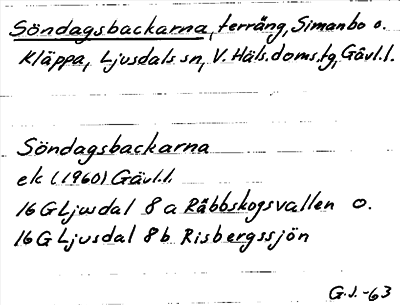 Söndagsbackarna, terräng, Simanbo o.
Kläppa, Ljusdals sn, V. Häls. doms. tg, Gävl. l.
Söndagsbackarna
ek (1960) Gävl. l.
16 G Ljusdal 8 a Råbbskogsvallen o.
16 G Ljusdal 8 b Risbergssjön
G. J. -63